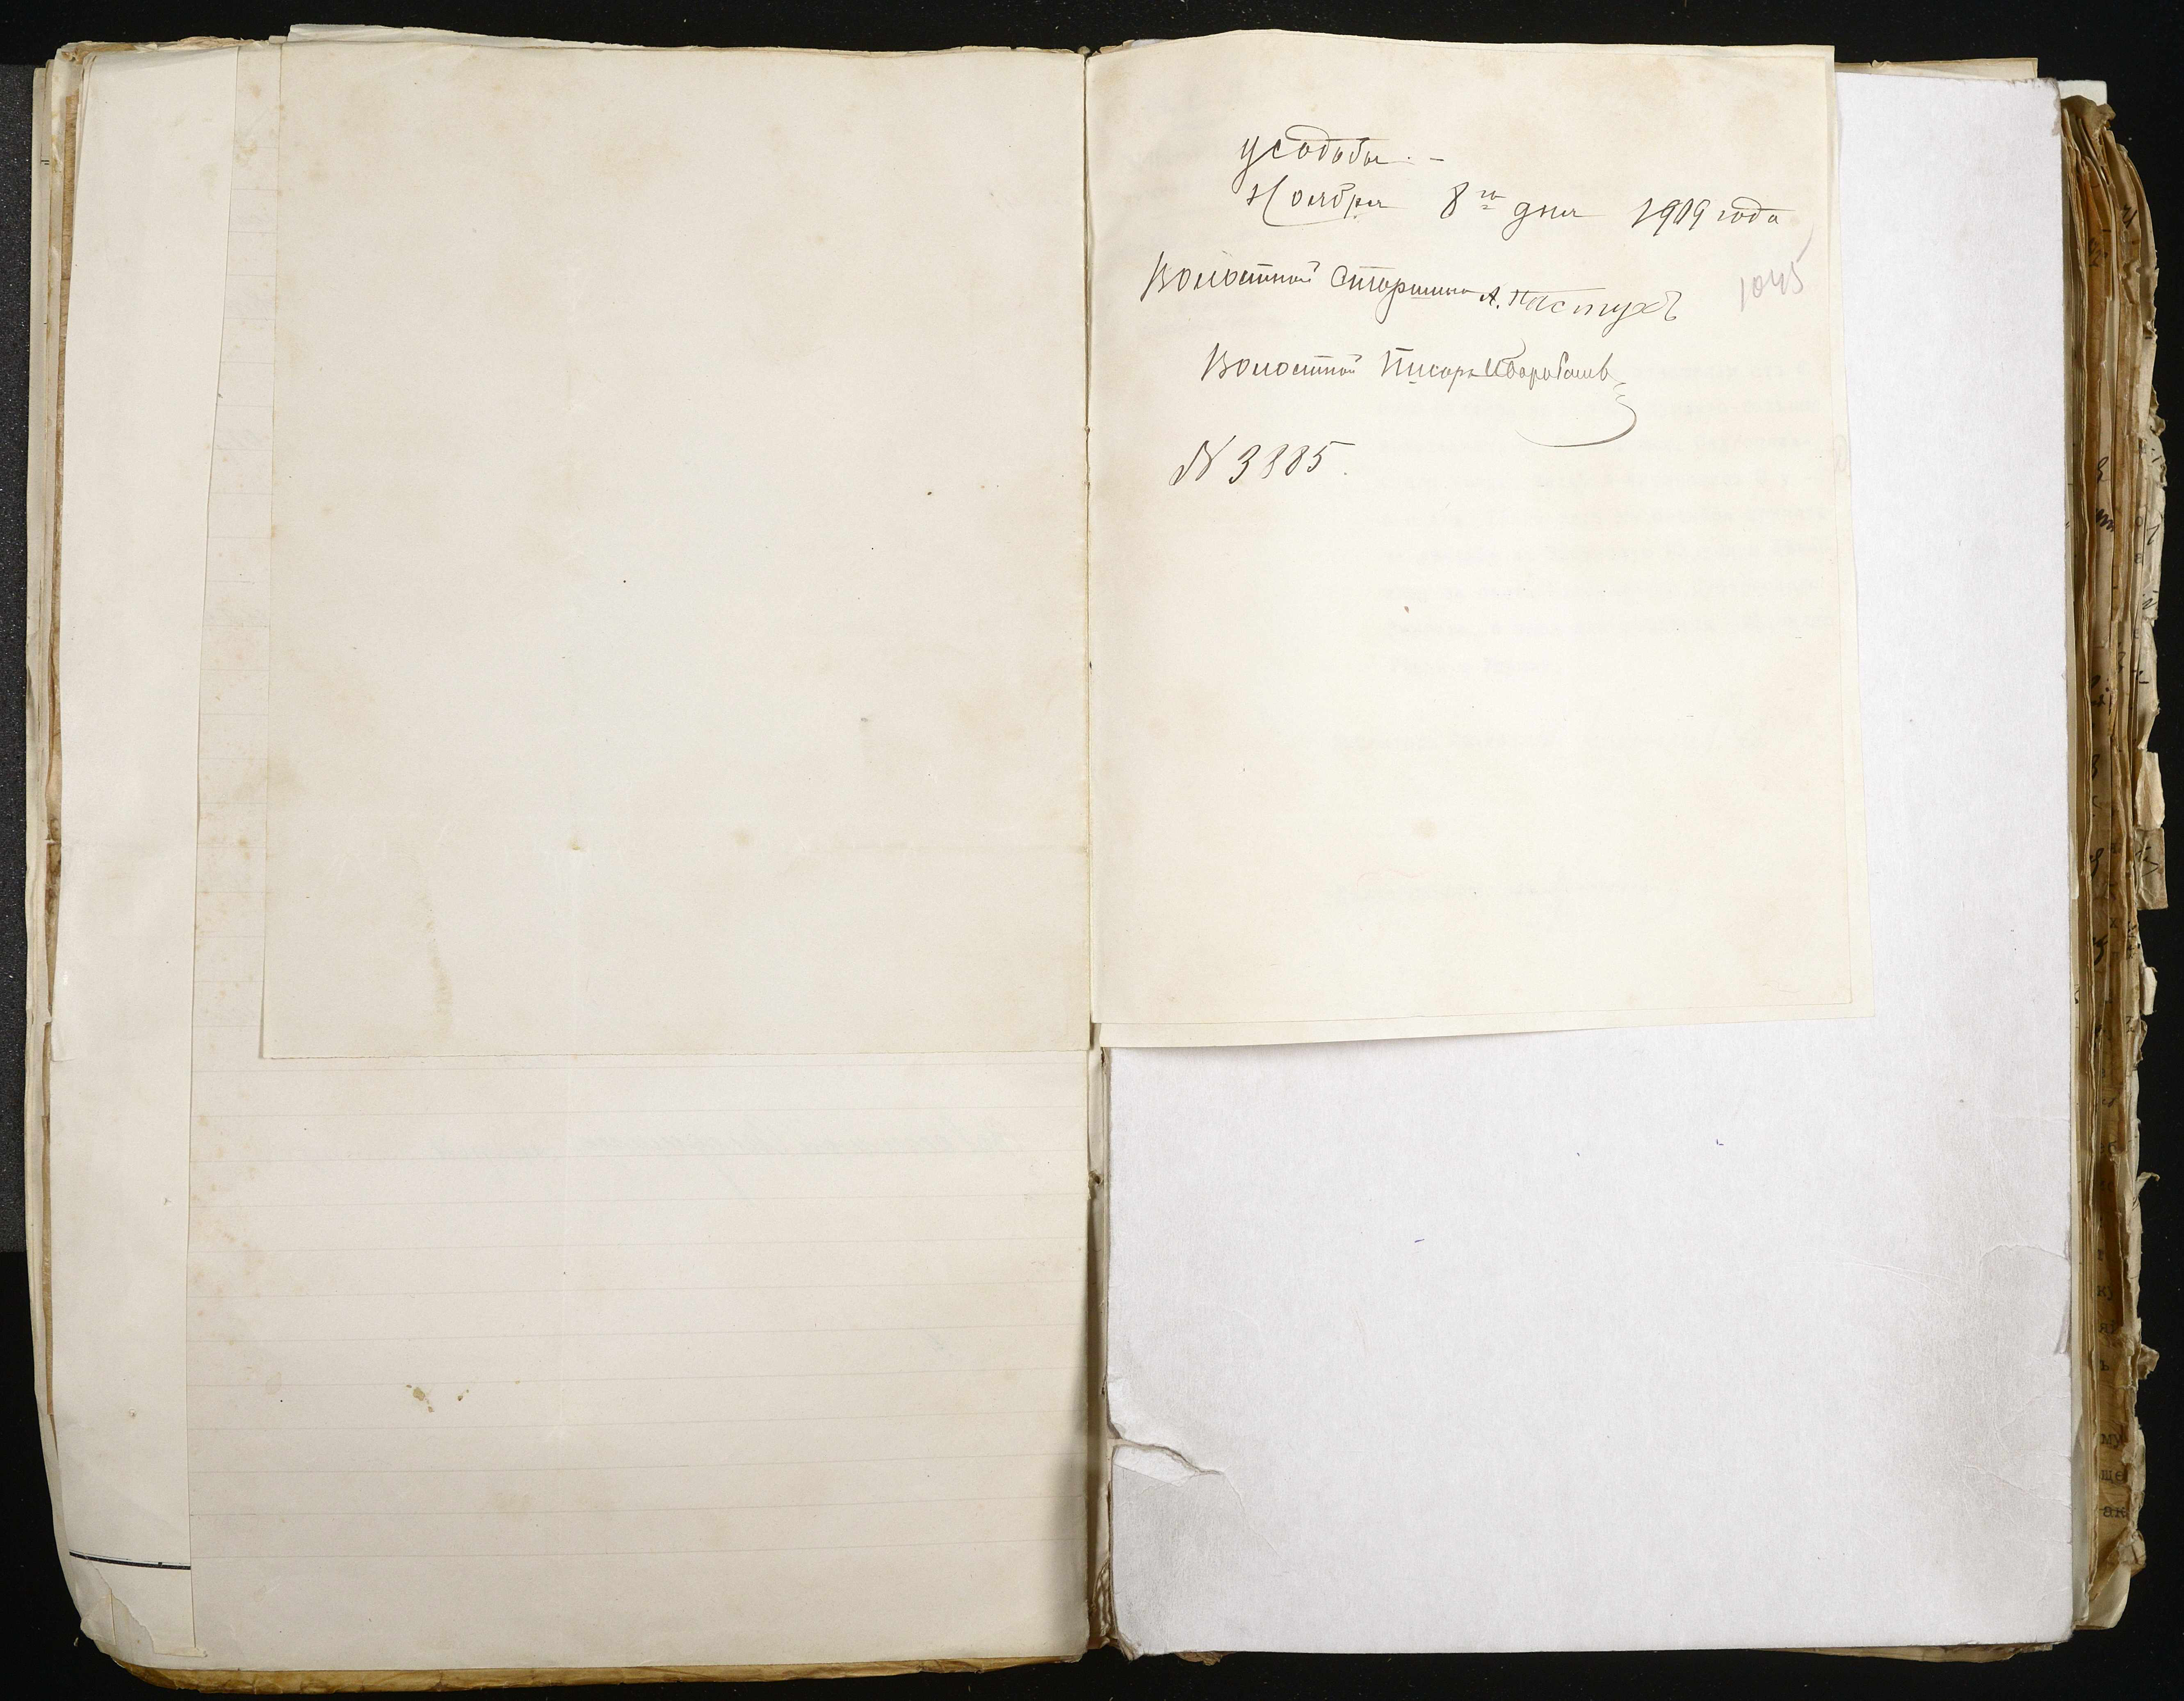 усадьбы. -
Ноября 8го дня 1909 года
1045
Волостной Старшина А. Пастухъ
Волостной Писарь
№ 3885.